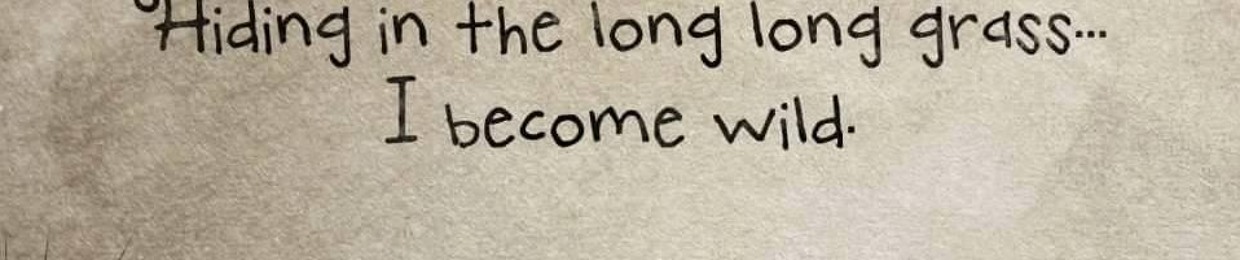 Hiding in the long long grass...
I become wild.